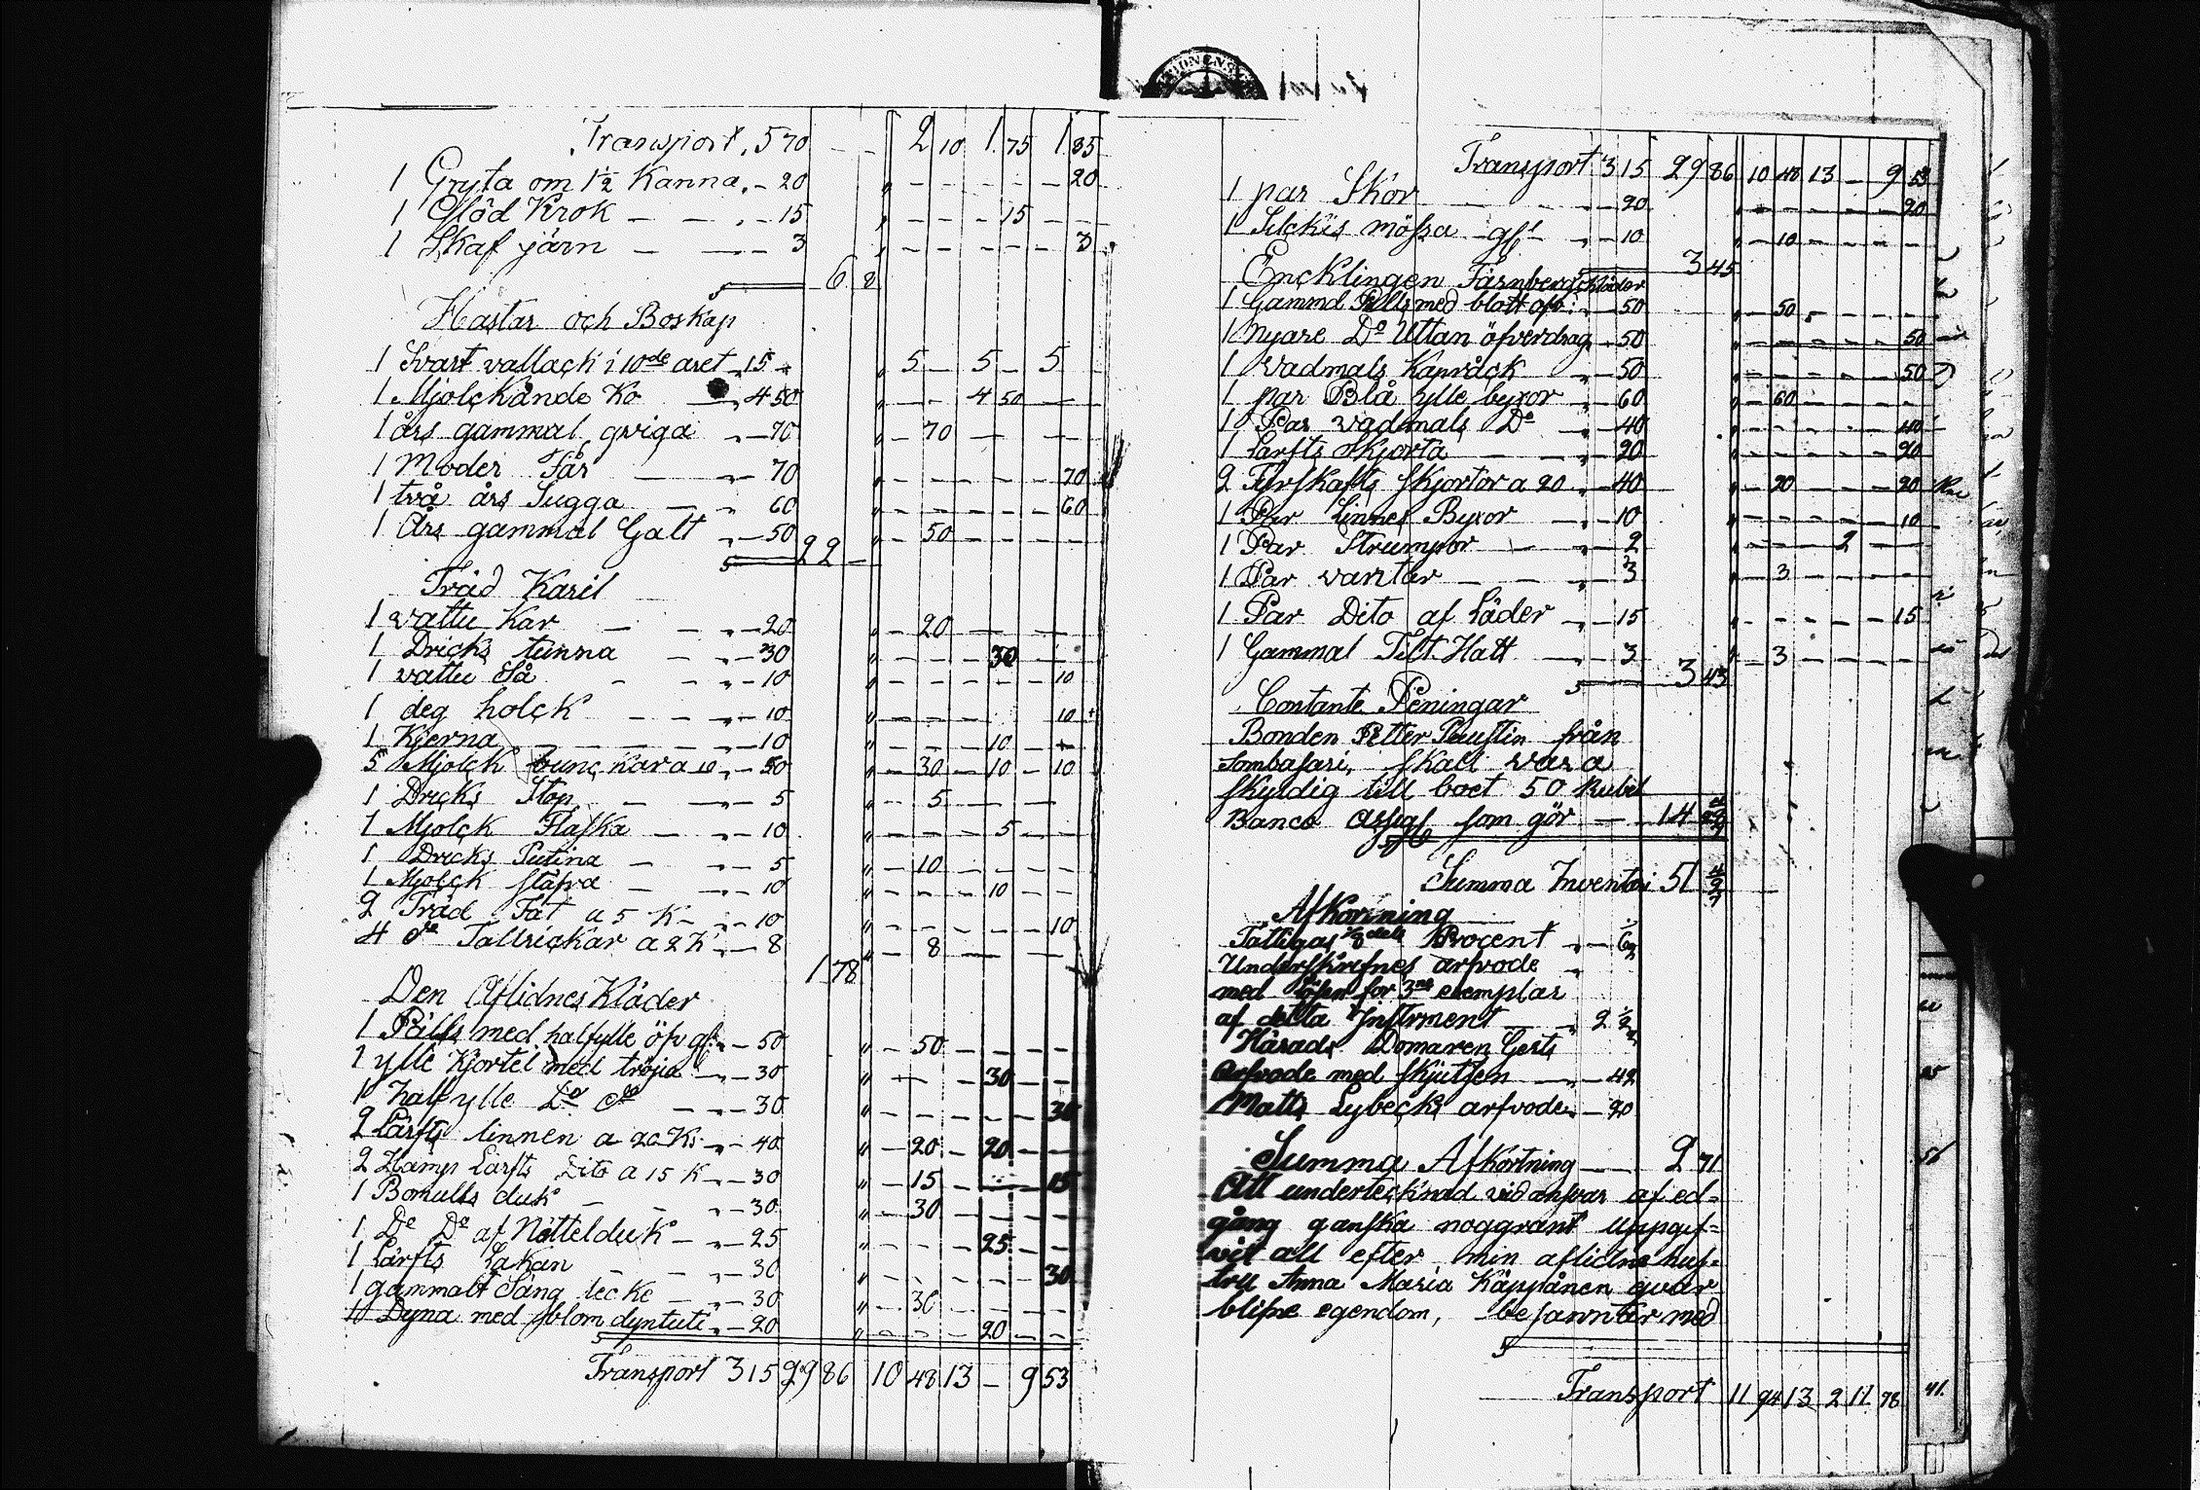 Transport. 5 70 — — 2 10 1 75 1 85
1 Gryta om 1½ Kanna. – 20 „ – – – – – 20
1 Glöd Krok – – „ – 15 „ – – – 15 – –
1 Skaf järn – – – 3 „ – – – – – 3
6 8
Hästar och Boskap
1 Svart vallack i 10de året „ 15 – „ 5 – 5 – 5
1 Mjölckande Ko – „ 4 50 „ – – 4 50 – –
1 års gammal qviga „ – 70 „ – 70 – – –
1 Moder Får – „ – 70 „ – – – – – 70
1 två års Sugga – „ 60 „ – – – – – 60
1 Års gammal Galt „ – 50 „ – 50
22 –
Träd Käril
1 vattu Kar – – „ – 20 „ – 20 – –
1 Dricks tunna – „ – 30 „ – – – 30 – –
1 vattu Så – – „ – 10 „ – – – – – 10
1 deg holck – – – „ – 10 „ – – – – – 10
1 Kjerna – – – – – 10 „ – – – 10 –
5 Mjölck bunc kar a 10 „ – 50 „ – 30 – 10 – 10
1 Dricks Stop – – – 5 „ – 5 – –
1 Mjölck Flaska – „ – 10 „ – – – 5 – –
1 Dricks Putina – „ – 5 „ – 10
1 Mjölck stäfva – „ – 10 „ – – – 10 – –
2 Träd Fat a 5 K – „ – 10 „ – – – – – 10
4 de Tallrickar a 2 K „ – 8 „ – 8 – –
1 78
Den Aflidnes Kläder
1 Pälls med halfylle öfv gl: „ – 50 „ – 50 – – – –
1 ylle Kjortel med tröjia – „ – 30 „ – – – 30 – –
1 half ylle Do do – „ – 30 „ – – – – – 30
2 Lärfts linnen a 20 K: „ – 40 „ – 20 – 20 – –
2 Hamp Lärfts Dito a 15 K „ – 30 „ – 15 – – – 15
1 Bomulls duk – – „ – 30 „ – 30 – – – –
1 Do Do af Nättelduk – „ – 25 „ – – – 25 – –
1 Lärfts Lakan – – „ – 30 „ – – – – – 30
1 gammalt Säng tecke – „ – 30 „ – 30 – – – –
1 Dyna med blom dyntute „ – 20 „ – – – 20 – –
Transport 3 15 29 86 10 48 13 – 9 53
Transport 3 15 29 86 10 48 13 – 9 53
1 par Skor – – – 20 „ – – – – – 20
1 Silckis mössa gl: „ – 10 „ – 10 – – – –
3 45
Encklingen Färnbergs Kläder
1 Gammal Pälls med blått öfv: – 50 „ – 50 – – – –
1 nyare Do Uttan öfverdrag „ 50 „ – – – – – 50
1 Vadmals Kapråck „ – 50 „ – – – – – 50
1 par Blå ylle byxor „ – 60 „ – 60 – – – –
1 Par vadmals Do „ – 40 „ – – – – – 40
1 Larfts Skjorta – – 20 „ – – – – – 20
2 Fyrskafts skjortor a 20 „ – 40 „ – 20 – – – 20
1 Par Linnes Byxor – – 10 „ – – – – – 10
1 Par Strumpor – „ – 2 „ – – – 2 – –
1 Par vantar – – „ 3 „ – 3 – – – –
1 Par Dito af Läder „ – 15 „ – – – – – 15
1 Gammal Filt Hatt – 3 „ – 3 – – – –
3 43
Contante Peningar
Bonden Petter Paustin från
Sombasari, skall vara
skyldig till boet 50 Rubel
Banco Assigl som gör – – 14 2/7
Summa Inventari 51 4/7
Afkortning
Fattigas 1/8 dels Procent „ – 6½
Underskrefnes arfvode „
med lösen för 3ne exemplar
af detta Instrment – „ 2 ½
Härads Domaren Gests
arfvode med skjutsen – „ – 42
Matts Lybecks arfvode „ – 20
Summa Afkortning – – 2 71
Att undertecknad vid ansvar af ed=
gång ganska noggrant uppgif=
vit all efter min aflidne hus=
tru Anna Maria Käppänen qvar
blifne egendom, besannter med
Transport 11 94 13 2 11 78